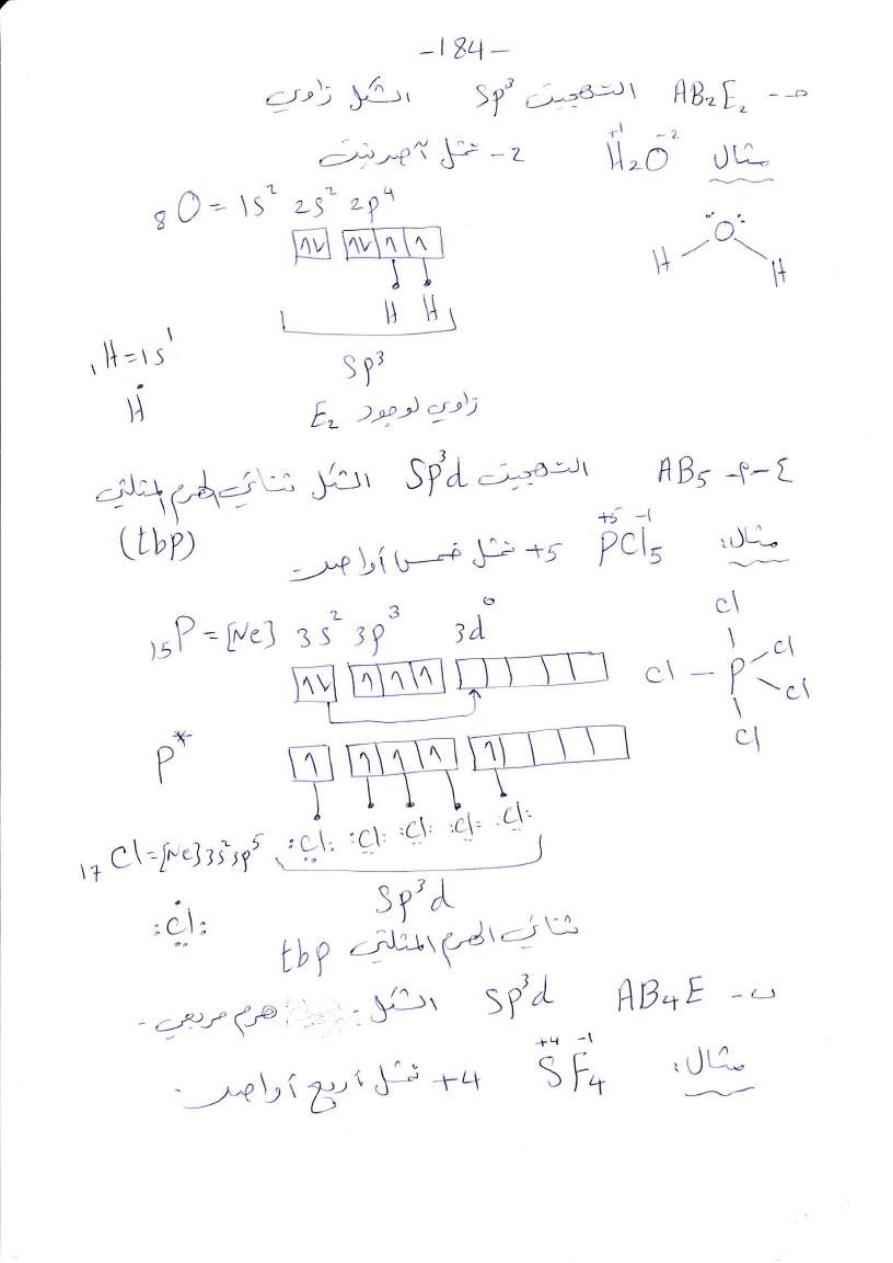 -184-
حـ- AB₂E₂ التهجين Sp³ الشكل زاوي
مثال H₂⁺¹O⁻² -2 تمثل آصرتين
₈O = 1s² 2s² 2p⁴
O
H H
H H
₁H=1s¹
Sp³
H
زاوي لوجود E₂
4-أ- AB₅ التهجين Sp³d الشكل ثنائي الهرم المثلثي
(tbp)
مثال: P⁺⁵Cl₅⁻¹ +5 تمثل خمس أواصر
₁₅P = [Ne] 3s² 3p³ 3d⁰
Cl
Cl - P Cl Cl
Cl
P*
₁₇Cl=[Ne]3s²3p⁵ :Cl: :Cl: :Cl: :Cl: :Cl:
Sp³d
:Cl:
ثنائي الهرم المثلثي tbp
ب- AB₄E Sp³d الشكل هرم مربعي.
مثال: S⁺⁴F₄⁻¹ +4 تمثل أربع أواصر.